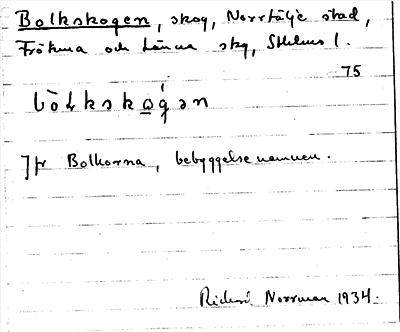 Bolkskogen, skog, Norrtälje stad,
Frötuna och Länna skg, Sthlms l.
75
bòłkskǫ́gən
Jfr Bolkarna, bebyggelsenamnen.
Norrman 1934.